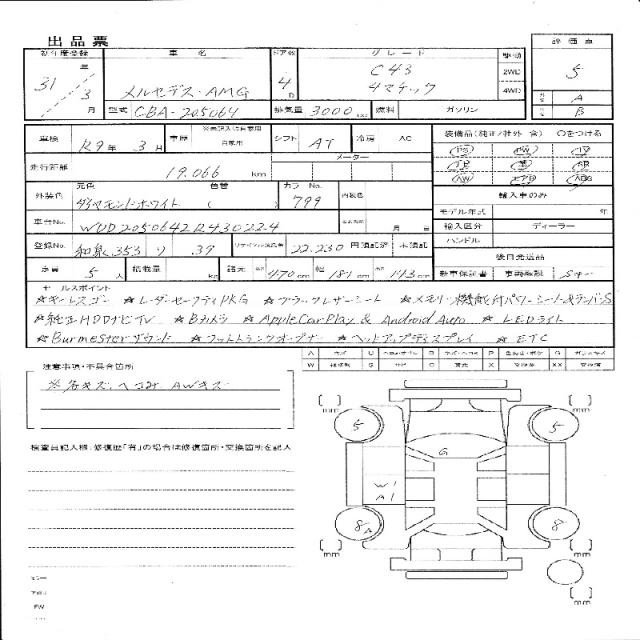 出品票
初年度登録 車名 ドア数 グレード 駆動 評価点
31年 3月 メルセデス・AMG 4D C43 4マチック 2WD 4WD 5
型式 CBA-205064 排気量 3000 燃料 ガソリン A B
車検 R9年 3月 車歴 ※未記入は自家用 自家用 シフト AT 冷房 AC 装備品(純正/社外 含) ○をつける
走行距離 19,066 km メーター PS PW
AW エアB ABS
外装色 元色 色替 カラーNo. 内装色 輸入車のみ
ダイヤモンドホワイト ( ) 799 モデル年式 年
車台No. WDD2050642R430224 輸入区分 ディーラー
登録No. 和泉 353 り 39 リサイクル預託金 22,230 円預託済 未預託 ハンドル
後日発送品
定員 5人 積載量 kg 諸元 長さ 470cm 幅 181cm 高さ 143cm 新車保証書
セールスポイント
☆キーレスゴー ☆レーダーセーフティPKG ☆ブラックレザーシート ☆メモリー機能付パワーシート&ランバーS
☆純正HDDナビTV ☆Bカメラ ☆Apple CarPlay & Android Auto ☆LEDライト
☆Burmesterサウンド ☆フットトランクオープナー ☆ヘッドアップディスプレイ ☆ETC
注意事項・不具合箇所
※各キズ、ヘコミ AWキズ
検査員記入欄:修復歴「有」の場合は修復箇所・交換箇所を記入
5 5
G
W1
A1
8 8
A
mm mm
mm mm
mm